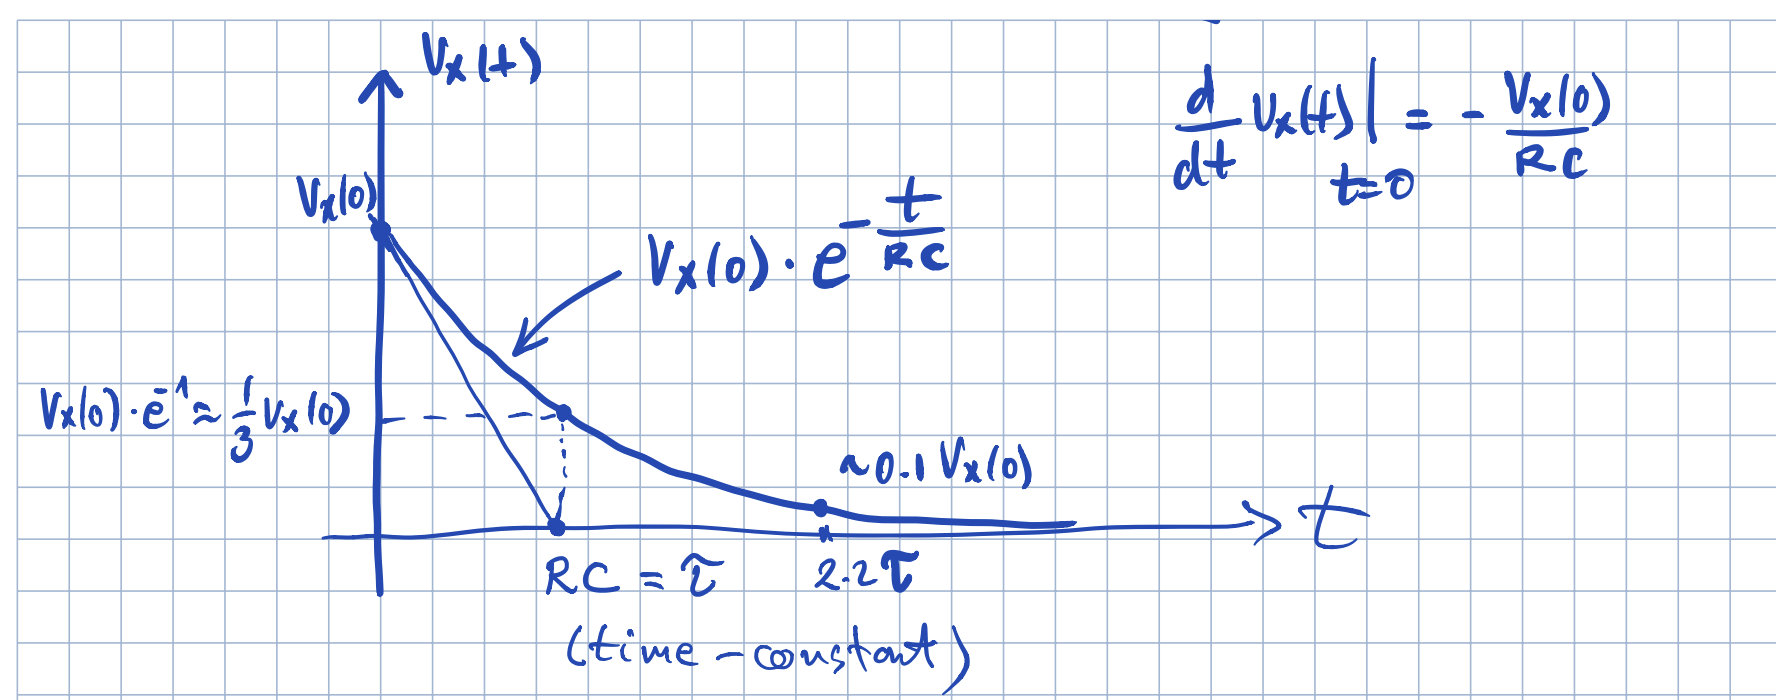 Vx(t)
d/dt Vx(t)|t=0 = - Vx(0)/RC
Vx(0)
Vx(0) · e^-t/RC
Vx(0) · e^-1 ≈ 1/3 Vx(0)
~0.1 Vx(0)
t
RC = τ
2.2τ
(time-constant)